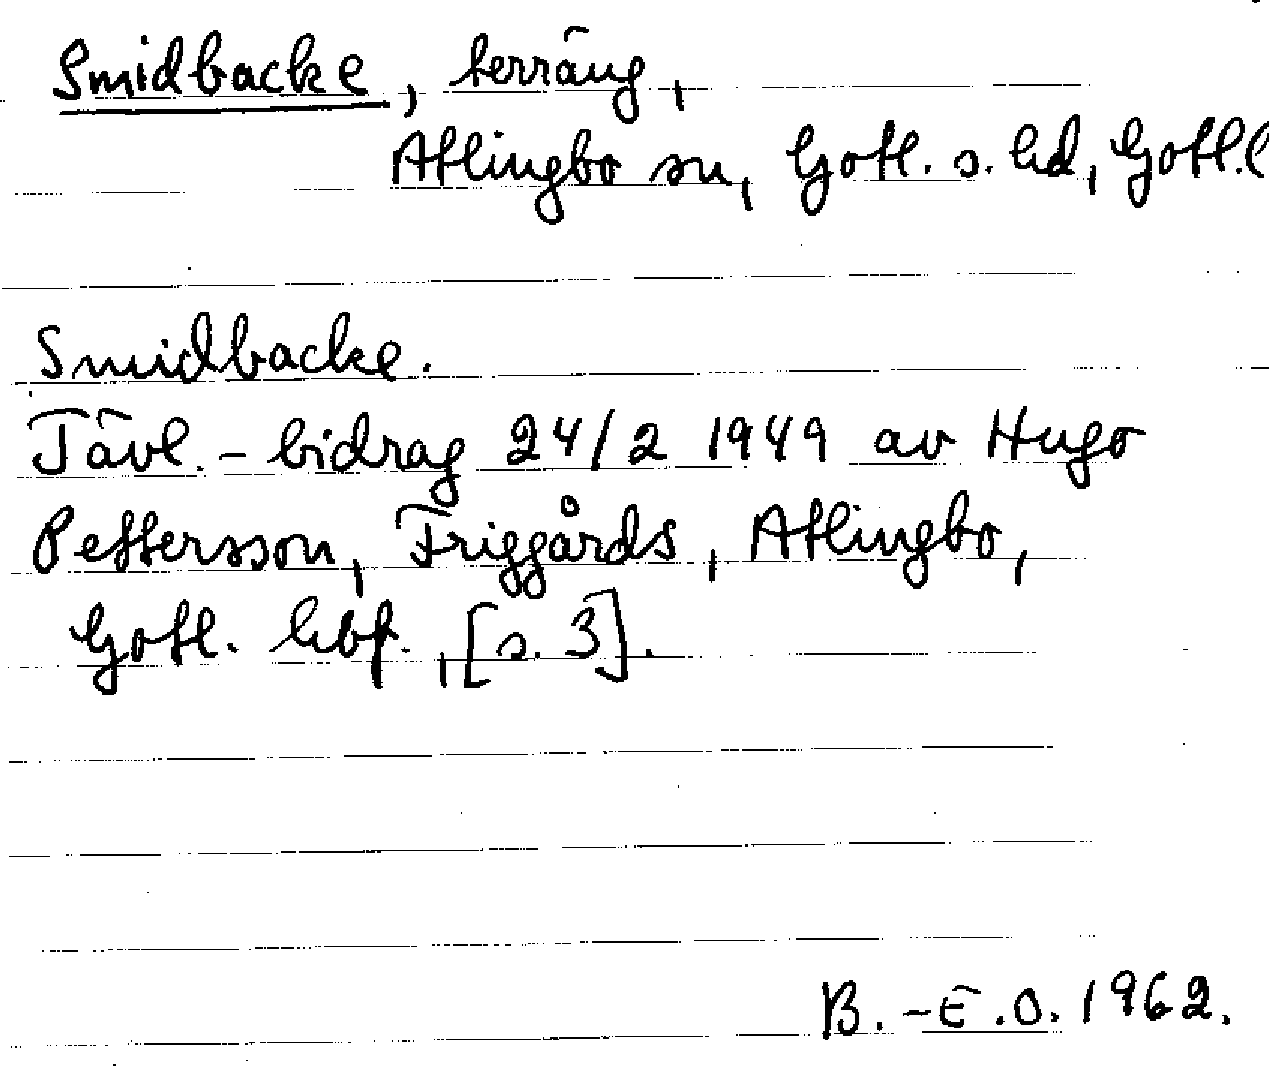 Smidbacke, terräng,
Atlingbo sn, Gotl. s. hd, Gotl. l
Smidbacke.
Tävl. - bidrag 24/2 1949 av Hugo
Pettersson, Friggårds, Atlingbo,
Gotl. hbf., [s. 3].
B. -E. O. 1962.